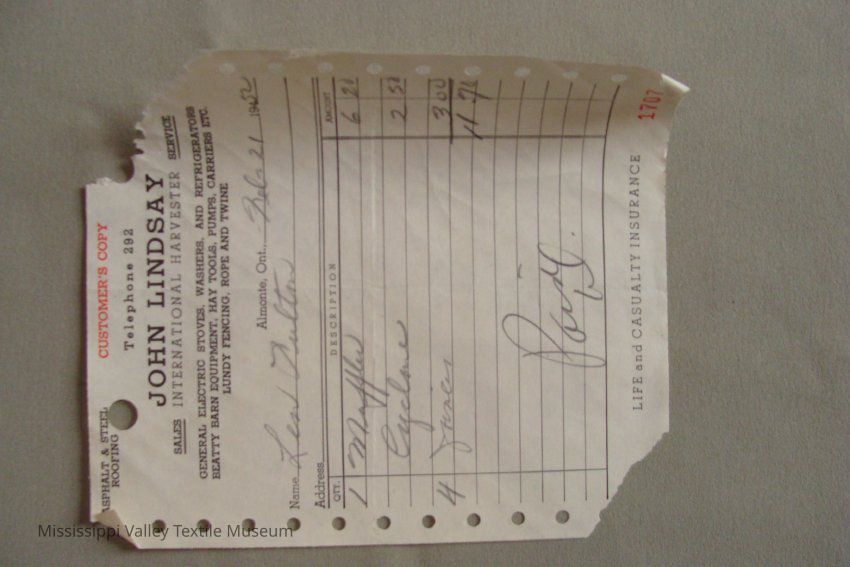 ASPHALT & STEEL
ROOFING
CUSTOMER'S COPY
Telephone 292
JOHN LINDSAY
SALES INTERNATIONAL HARVESTER SERVICE
GENERAL ELECTRIC STOVES, WASHERS, AND REFRIGERATORS
BEATTY BARN EQUIPMENT, HAY TOOLS, PUMPS, CARRIERS ETC.
LUNDY FENCING, ROPE AND TWINE
Almonte, Ont., Feb 21 1952
Name
Address
QTY. DESCRIPTION AMOUNT
1 Muffler 6 21
Cyclone 2 50
4 3 00
11 71
Paid
LIFE and CASUALTY INSURANCE
1707
Mississippi Valley Textile Museum